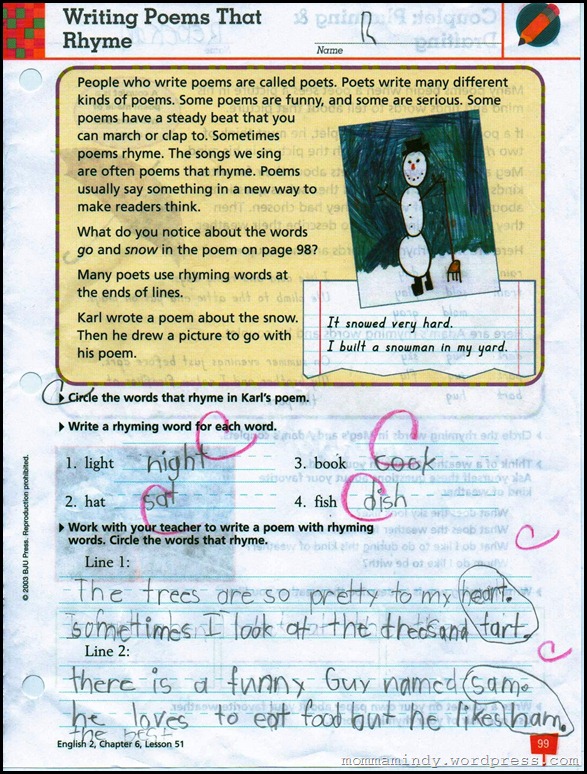 Writing Poems That
Rhyme
Name R
People who write poems are called poets. Poets write many different
kinds of poems. Some poems are funny, and some are serious. Some
poems have a steady beat that you
can march or clap to. Sometimes
poems rhyme. The songs we sing
are often poems that rhyme. Poems
usually say something in a new way to
make readers think.
What do you notice about the words
go and snow in the poem on page 98?
Many poets use rhyming words at
the ends of lines.
Karl wrote a poem about the snow.
Then he drew a picture to go with
his poem.
It snowed very hard.
I built a snowman in my yard.
C
Circle the words that rhyme in Karl's poem.
Write a rhyming word for each word.
1. light night C
3. book cook C
2. hat sat C
4. fish dish C
Work with your teacher to write a poem with rhyming
words. Circle the words that rhyme.
C
Line 1:
The trees are so pretty to my heart.
sometimes I look at the trees and tart.
Line 2:
C
there is a funny Guy named sam.
he loves to eat food but he likes ham.
the best
© 2003 BJU Press. Reproduction prohibited.
English 2, Chapter 6, Lesson 51
99
mommamindy.wordpress.com